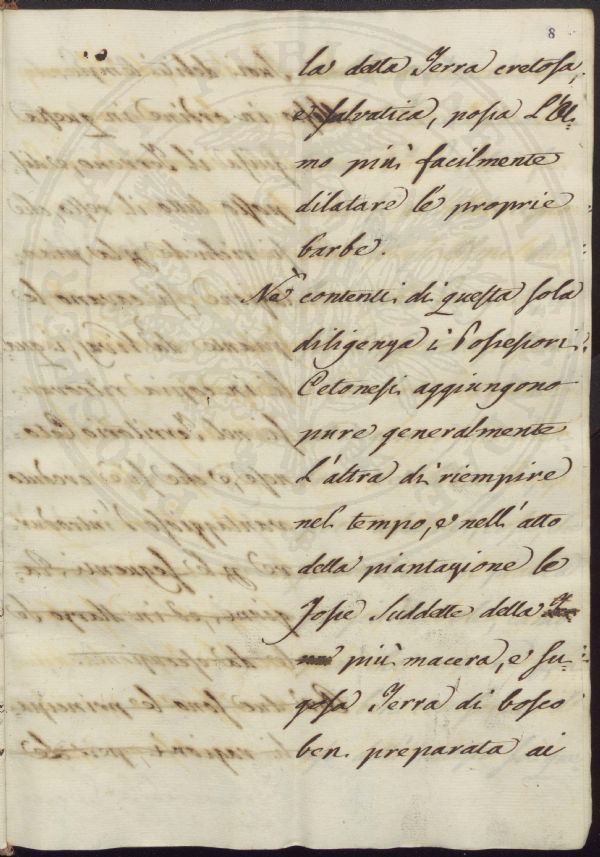 8
la detta Terra cretosa,
e salvatica, possa l'Ol-
mo più facilmente
dilatare le proprie
barbe.
Nè contenti di questa sola
diligenza i Possessori
Cetonesi aggiungono
pure generalmente
l'altra di riempire
nel tempo, e nell'atto
della piantazione le
fosse suddette della
più macera, e su-
gosa Terra di bosco
ben preparata ai